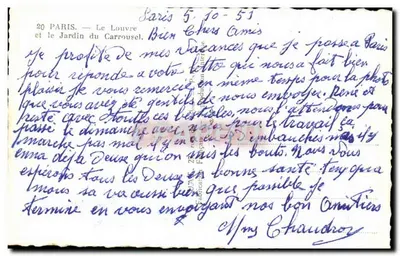 80 PARIS. — Le Louvre
et le Jardin du Carrousel.
Paris 5-10-51
Bien Chers Amis
Je profite de mes vacances que je passe a Paris
pour reponde a votre lettre que nous a fait bien
plaisir Je vous remercie en même temps pour la photo
que vous avez été gentils de nous envoyer. René et
resté avec toutes ces bestioles, nous l'attendons pour
passé le dimanche avec nous pour le travail ça
marche pas mal il y a nous d'embauches mais il y
enna deja Deux qu'on mis les bouts. Nous vous
esperons tous les Deux en bonne santé ten que
nous sa va aussi bien que possible je
termine en vous envoyant nos bon Amitiers
Mme Chaudroy